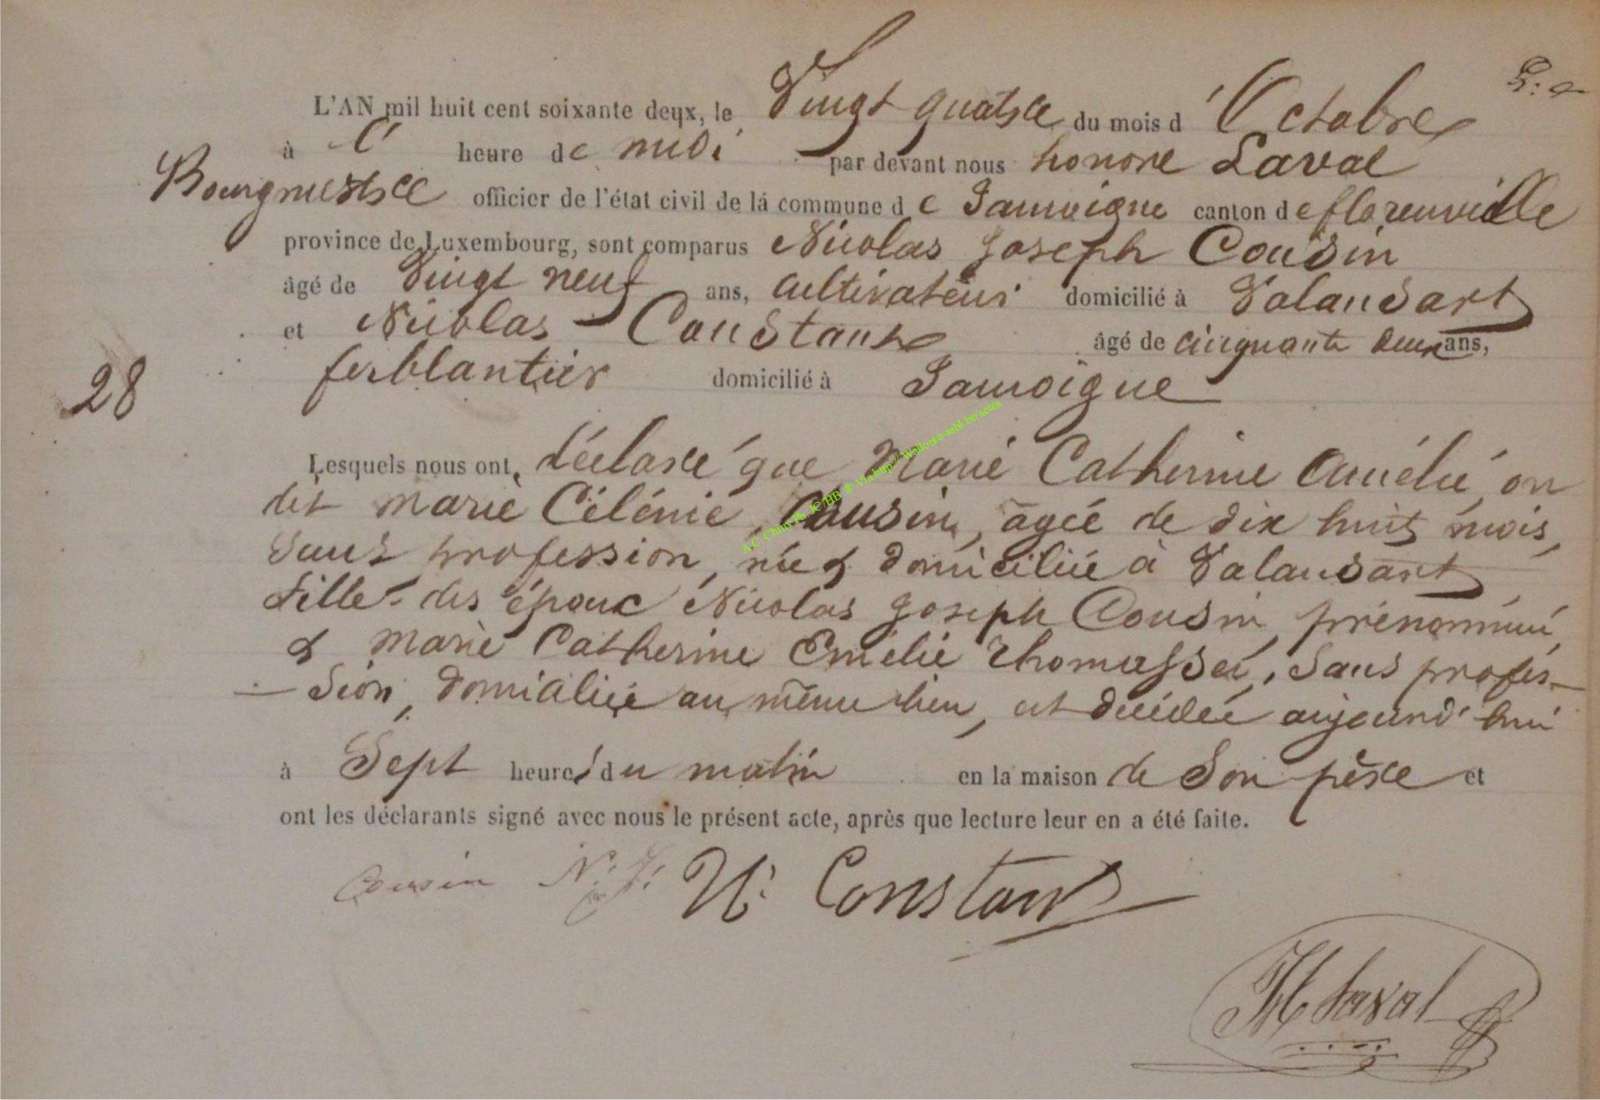 L'AN mil huit cent soixante deux, le Vingt quatre du mois d'Octobre
à l' heure de midi par devant nous honoré Laval
Bourgmestre officier de l'état civil de la commune de Jamoigne canton de florenville
province de Luxembourg, sont comparus Nicolas Joseph Cousin
âgé de Vingt neuf ans, cultivateur domicilié à Valansart
et Nicolas Constant âgé de cinquante deux ans,
28
ferblantier domicilié à Jamoigne
Lesquels nous ont déclaré que Marie Catherine Amélie, on
dit Marie Célénie Cousin, âgée de dix huit mois,
Sans profession, née & domiciliée à Valansart
fille des époux Nicolas Joseph Cousin, prénommé,
& Marie Catherine Emélie Thomasset, Sans profes-
-sion, domiciliée au même lieu, est décédée aujourd'hui
à Sept heures du matin en la maison de Son père et
ont les déclarants signé avec nous le présent acte, après que lecture leur en a été faite.
Cousin N. J. N. Constant
H Laval